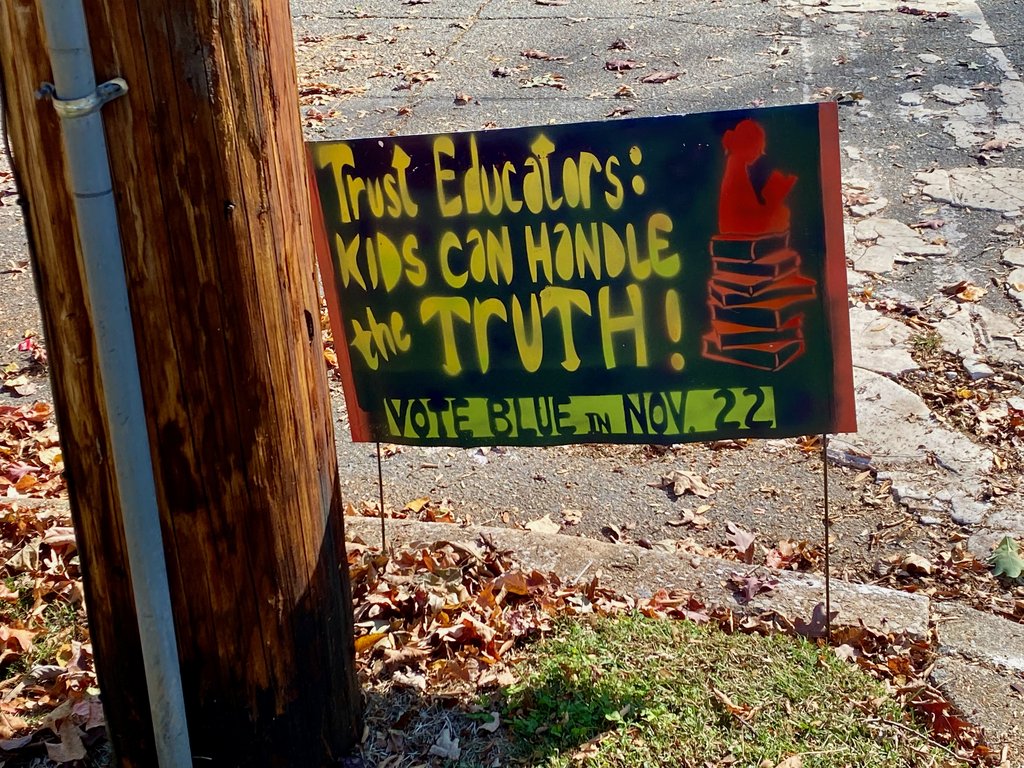 Trust Educators:
KIDS CAN HANDLE
the TRUTH!
VOTE BLUE IN NOV. 22